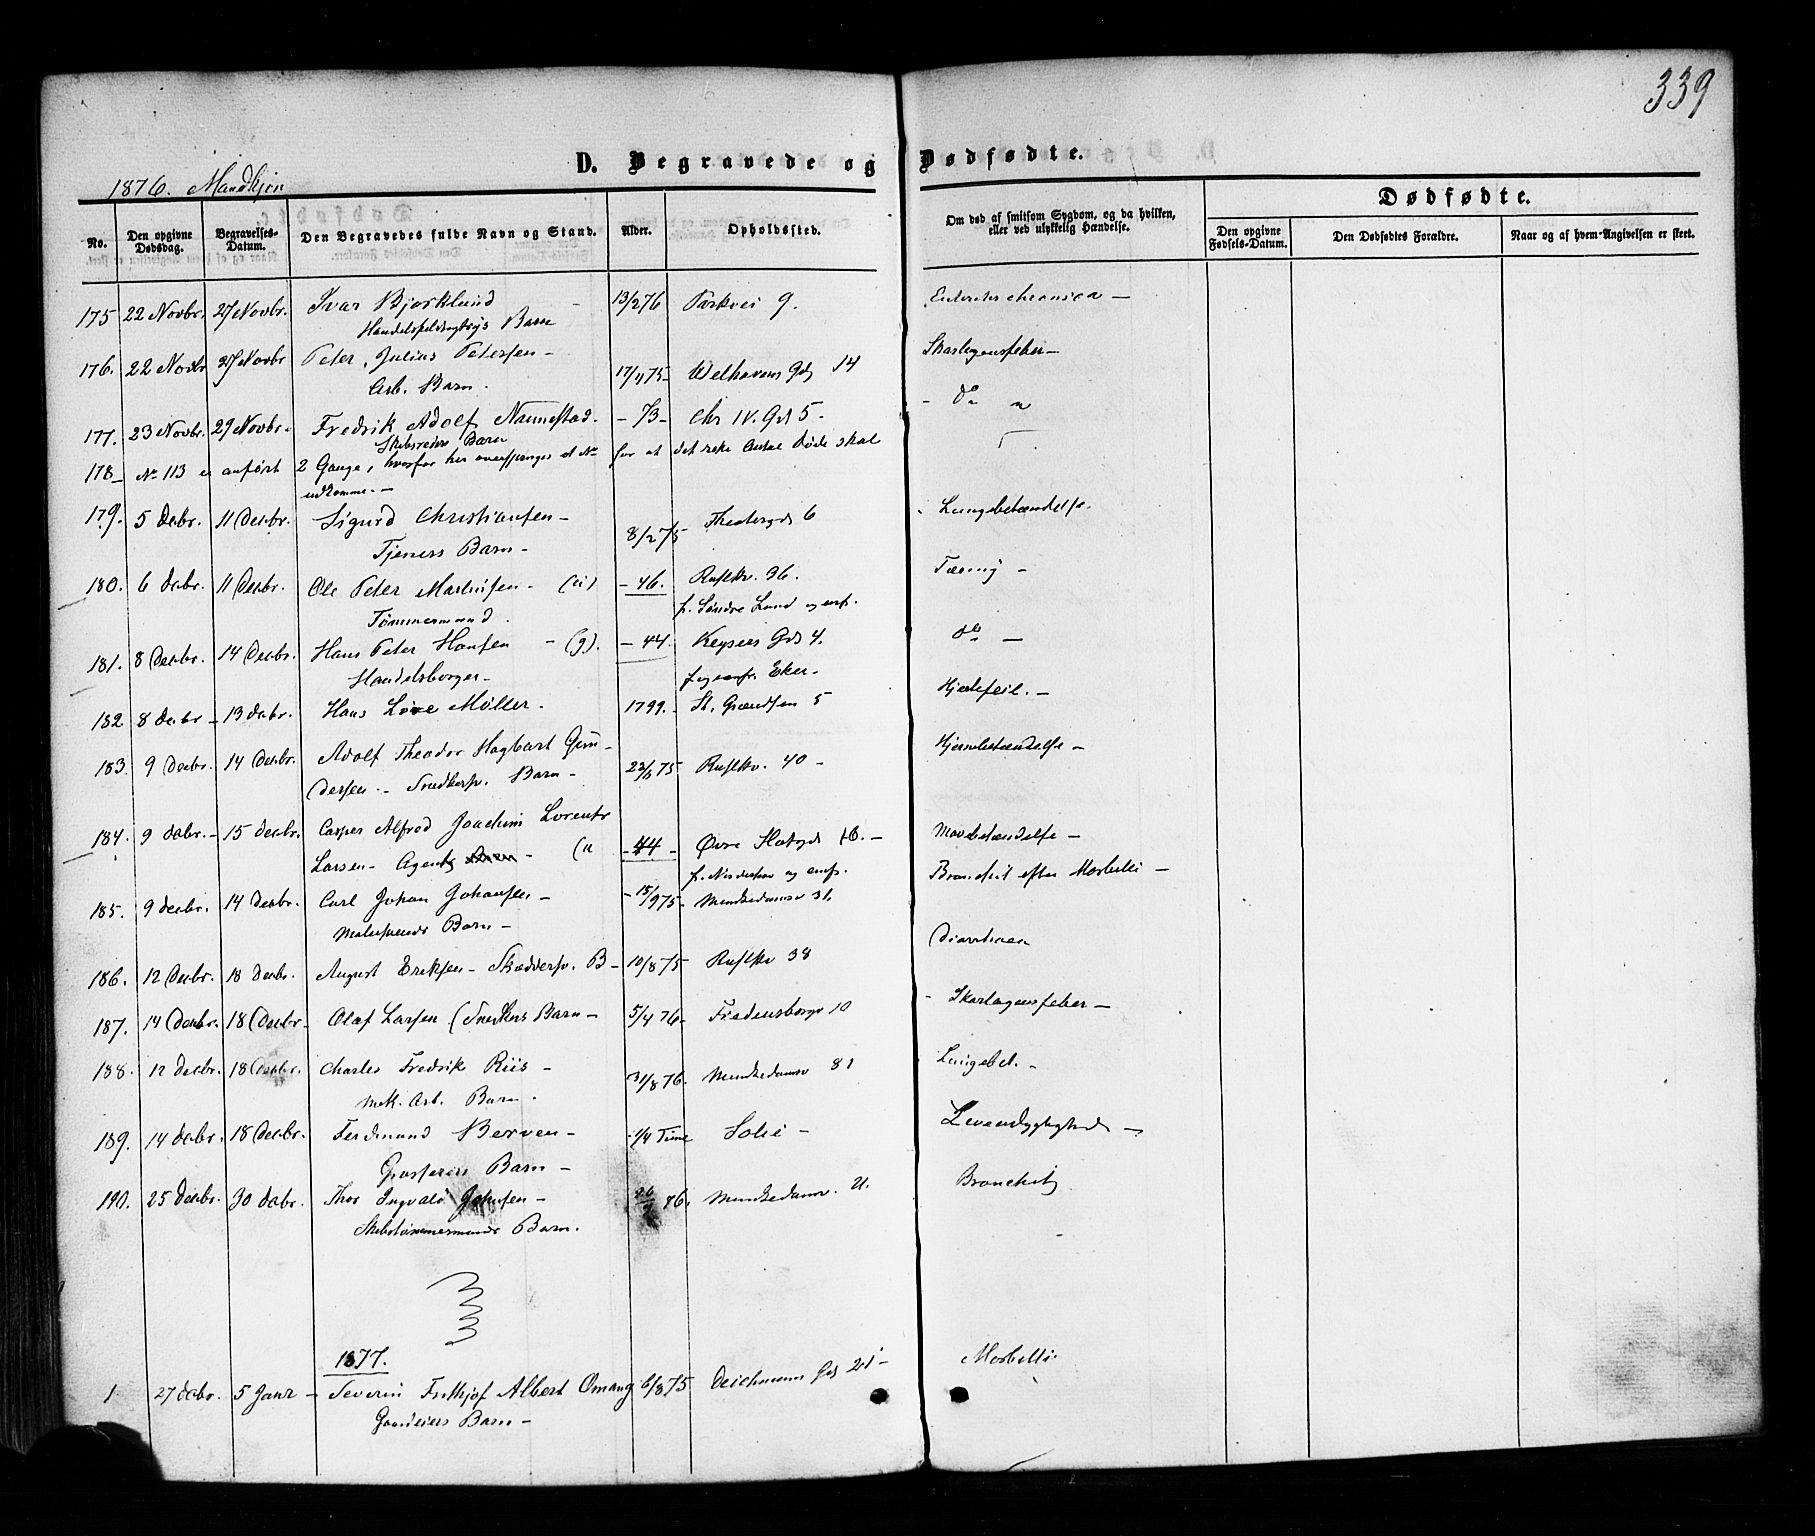 339
D. Begravede og Dødfødte.
1876. Mandkjøn
No. Den opgivne Dødsdag. Begravelses-Datum. Den Begravedes fulde Navn og Stand. Alder. Opholdssted. Om død af smitsom Sygdom, og da hvilken, eller ved ulykkelig Hændelse. Dødfødte.
Den opgivne Fødsels-Datum. Den Dødfødtes Forældre. Naar og af hvem Angivelsen er skeet.
175 22 Novbr. 27 Novbr. Ivar Bjorklund 13/2 76 Parkvei 9. Enteritis chronica —
Barn
176. 22 Novbr 27 Novbr Peter Julius Petersen — 17/11 75 — Welhavens Gd 14 Skarlagensfeber —
Arb. Barn.
177. 23 Novbr. 29 Novbr. Fredrik Adolf Nannestad. — 73 — Chr IV. Gd 5 — do
Barn
178 — No 113 er anført 2 Gange, hvorfor her overspringes et No for at det rette Antal Døde skal
udkomme. —
179. 5 Decbr. 11 Decbr. Sigurd Christiansen — 8/2 75 Theatergd 6 Lungebetændelse.
Tjeners Barn —
180. 6 Decbr. 11 Decbr. Ole Peter Martinsen — (u) — 46. Ruselkv. 36. Tæring —
Tømmermand. f. Søndre Land
181. 8 Decbr. 14 Decbr. Hans Peter Hansen — (g). — 44. Keysers Gd 4. do —
Handelsborger — Eker —
182 8 Decbr — 13 Decbr. Hans Love Møller. 1799. — St. Grændsen 5 Hjertefeil. —
183. 9 Decbr. 14 Decbr. Adolf Theodor Hagbart Gun- 75 Ruselkv. 40 — Hjernebetændelse —
dersen — Snedkersv. Barn —
184. 9 Decbr. — 15 Decbr. Casper Alfred Joachim Lorentz — 44 — Øvre Slotsgd — Mavebetændelse —
Larsen — Agent (u
185. 9 Decbr. 14 Decbr. Carl Johan Johansen — 15/9 75 — Munkedamsv 31. Bronchit efter Morbilli —
Malersvends Barn —
186. 12 Decbr. 18 Decbr. August Eriksen — Skræddersv. B — 10/8 75 Ruselkv 38 Diarrhoea
187. 14 Decbr. 18 Decbr — Olaf Larsen (Snedkers Barn — 5/4 76 — Fredensborgv 10 Skarlagensfeber —
188. 12 Decbr. 18 Decbr. Charles Fredrik Riis — 31/8 76. Munkedamsv 81 Lungebet. —
Mek. Arb. Barn.
189. 14 Decbr. 18 Decbr. Ferdinand Berven — 1/4 Time Solie — Leveudygtighed —
Barn —
190. 25 Decbr. 30 Decbr. Thor Ingvald Johnsen — 76. Munkedamsv. 21. Bronchit
Skibstømmermands Barn.
1877.
1 27 Decbr. 5 Janr — Severin Frithjof Albert Omang 6/8 75 Deichmans Gd 21 — Morbilli
Gaardeiers Barn —